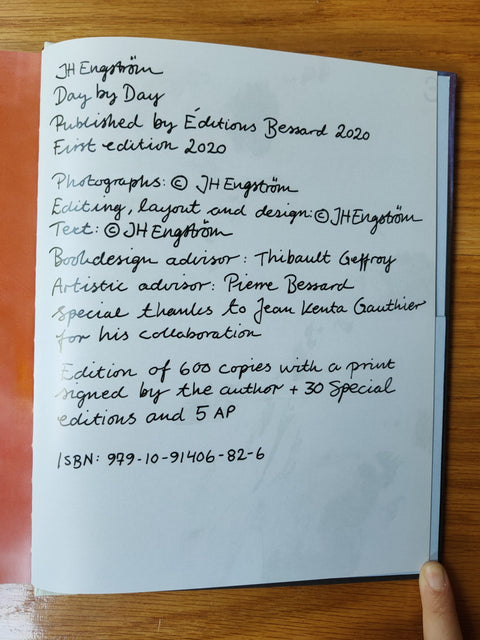 JH Engström
Day by Day
Published by Éditions Bessard 2020
First edition 2020
Photographs: © JH Engström
Editing, layout and design: © JH Engström
Text: © JH Engström
Bookdesign advisor: Thibault Geffroy
Artistic advisor: Pierre Bessard
Special thanks to Jean Kenta Gauthier
for his collaboration
Edition of 600 copies with a print
signed by the author + 30 Special
editions and 5 AP
ISBN: 979-10-91406-82-6